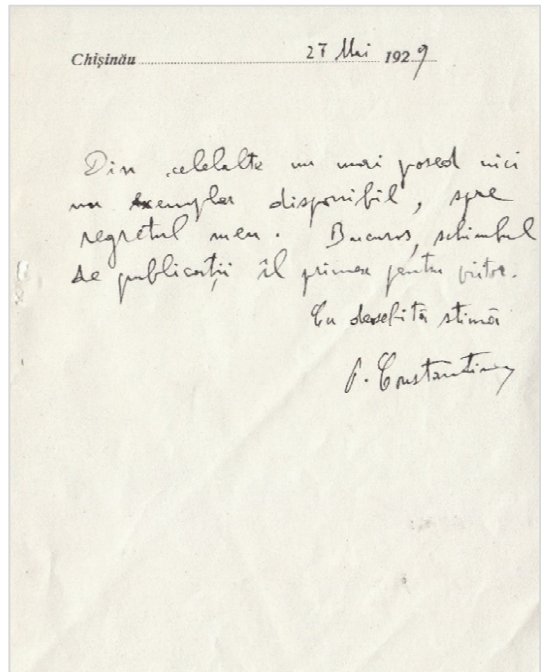 Chișinău 27 Mai 1929
Din celelalte nu mai posed nici
un exemplar disponibil, spre
regretul meu. Bucuros, schimbul
de publicații îl primesc pentru viitor.
Cu deosebită stimă
P. Constantinescu